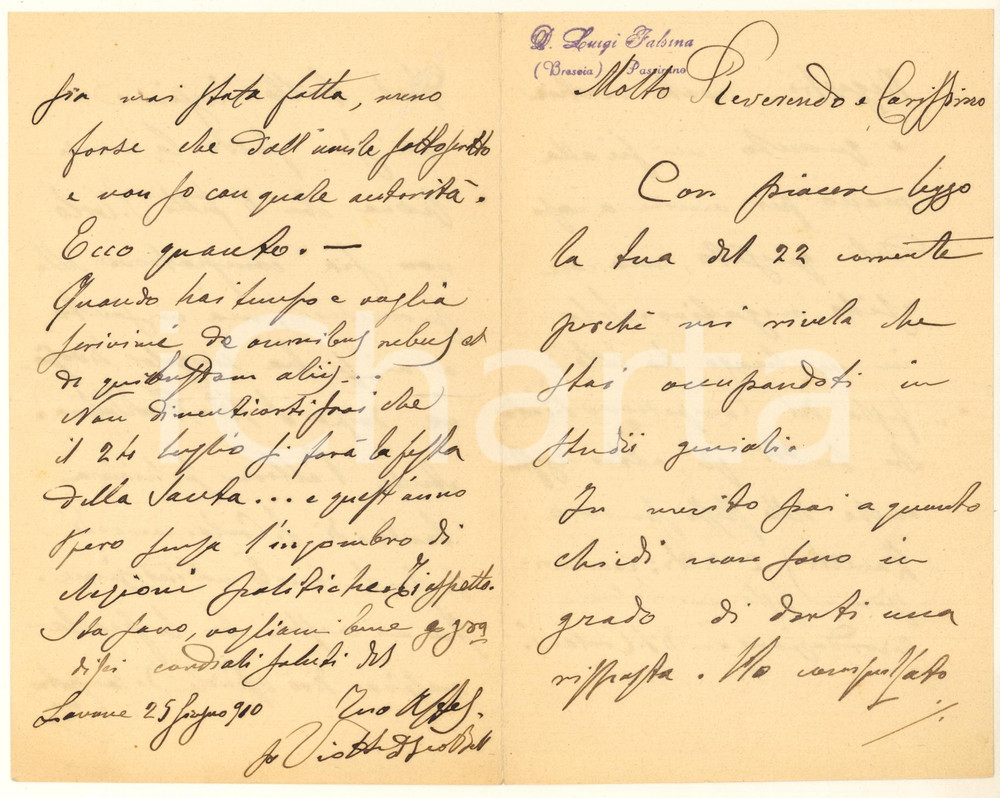 D. Luigi Falsina
(Brescia) Passirano
Molto Reverendo e Carissimo
Con piacere leggo
la tua del 22 corrente
perchè mi rivela che
stai occupandoti in
studii geniali.
In merito poi a quanto
chiedi non sono in
grado di darti una
risposta. Ho compulsato
sia mai stata fatta, meno
forse che dall'umile sottoscritto
e non so con quale autorità.
Ecco quanto. —
Quando hai tempo e voglia
scrivimi de omnibus rebus et
de quibusdam aliis...
Non dimenticarti poi che
il 24 luglio si farà la festa
della Santa... e quest'anno
spero senza l'ingombro di
elezioni politiche. Ti aspetto.
Sta sano, vogliami bene e
cordiali saluti del
Lavone 25 Giugno 910
Tuo Aff.
iCharta